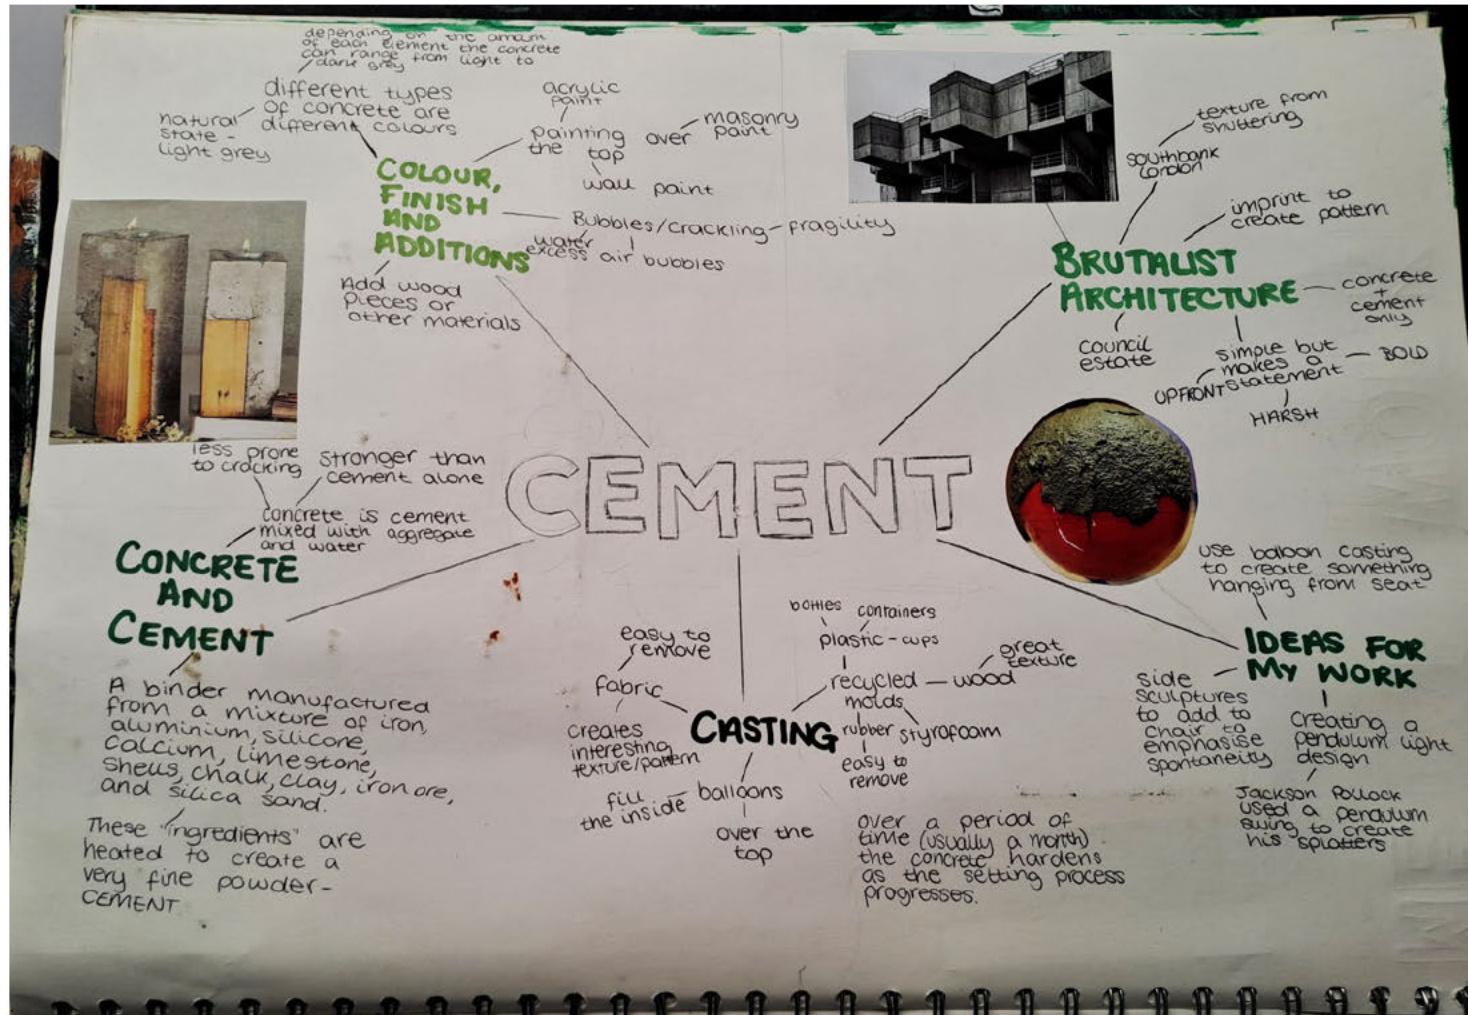 depending on the amount
of each element the concrete
can range from light to
dark grey
different types
of concrete are
different colours
natural
state -
light grey
acrylic
paint
painting over
the top
masonry
paint
wall paint
COLOUR,
FINISH
AND
ADDITIONS
Bubbles/crackling-fragility
water
excess air bubbles
Add wood
pieces or
other materials
texture from
shuttering
southbank
london
imprint to
create pattern
BRUTALIST
ARCHITECTURE
concrete
+
cement
only
council
estate
simple but
makes a
statement
BOLD
UPFRONT
HARSH
CEMENT
less prone
to cracking
stronger than
cement alone
concrete is cement
mixed with aggregate
and water
CONCRETE
AND
CEMENT
A binder manufactured
from a mixture of iron,
aluminium, silicone,
calcium, limestone,
shells, chalk, clay, iron ore,
and silica sand.
These "ingredients" are
heated to create a
very fine powder-
CEMENT
easy to
remove
fabric
creates
interesting
texture/pattern
CASTING
bottles containers
plastic-cups
recycled
molds
wood
great
texture
rubber
styrofoam
easy to
remove
balloons
fill
the inside
over the
top
over a period of
time (usually a month)
the concrete hardens
as the setting process
progresses.
use balloon casting
to create something
hanging from seat
IDEAS FOR
MY WORK
side
sculptures
to add to
chair to
emphasise
spontaneity
creating a
pendulum light
design
Jackson Pollock
used a pendulum
swing to create
his splatters